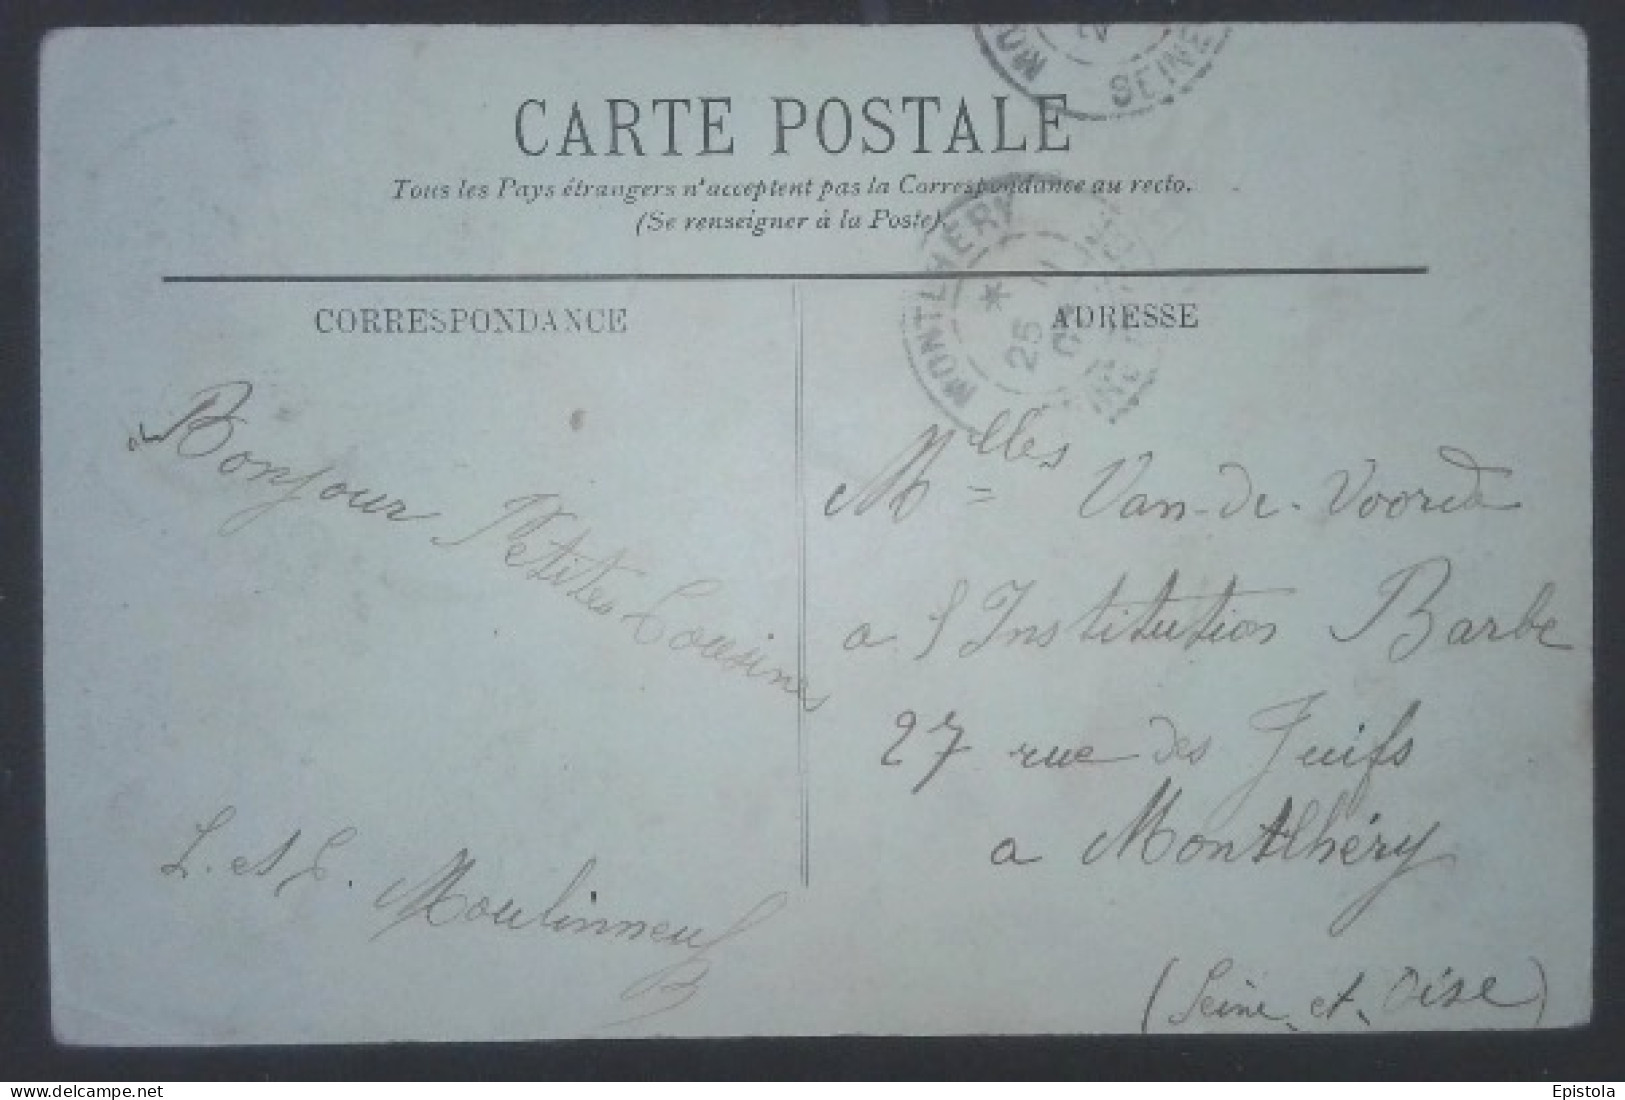 MO
SEINE
CARTE POSTALE
Tous les Pays étrangers n'acceptent pas la Correspondance au recto.
(Se renseigner à la Poste).
MONTLHÉRY
25
CORRESPONDANCE
ADRESSE
Bonjour Petites Cousines
L. et E. Moulinneuf
Melles Van-de-Voorde
a l'Institution Barbe
27 rue des Juifs
a Montlhéry
(Seine-et-Oise)
www.delcampe.net
Epistola